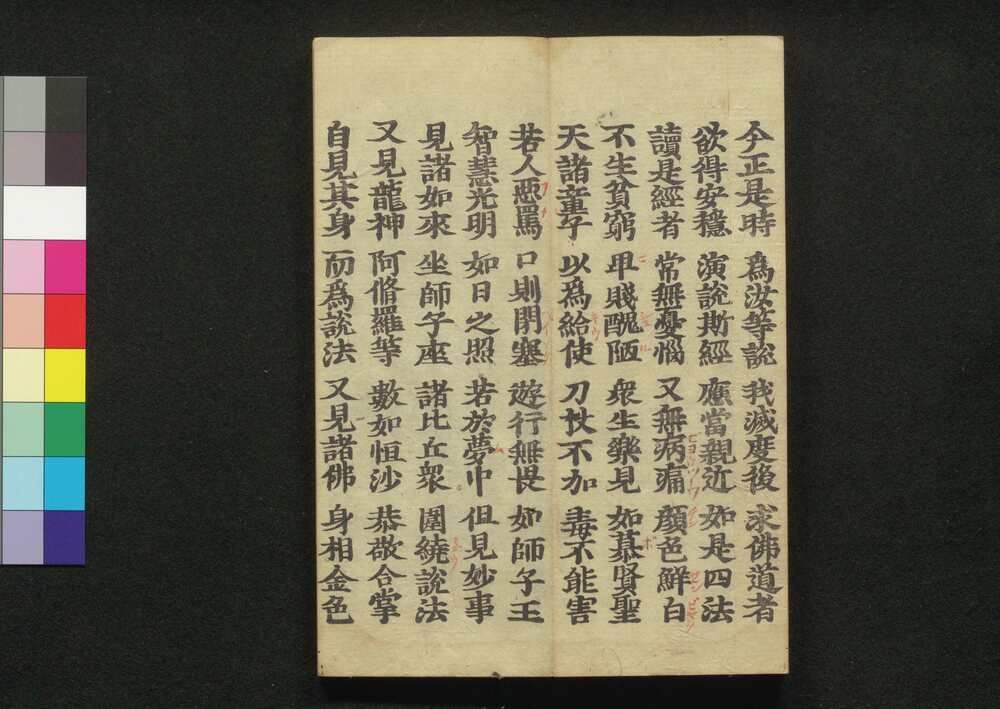 今正是時　為汝等說　我滅度後　求佛道者
欲得安穩　演說斯經　應當親近　如是四法
讀是經者　常無憂惱　又無病痛　顏色鮮白
不生貧窮　卑賤醜陋　衆生樂見　如慕賢聖
天諸童子　以為給使　刀杖不加　毒不能害
若人惡罵　口則閉塞　遊行無畏　如師子王
智慧光明　如日之照　若於夢中　但見妙事
見諸如來　坐師子座　諸比丘衆　圍繞說法
又見龍神　阿脩羅等　數如恒沙　恭敬合掌
自見其身　而為說法　又見諸佛　身相金色